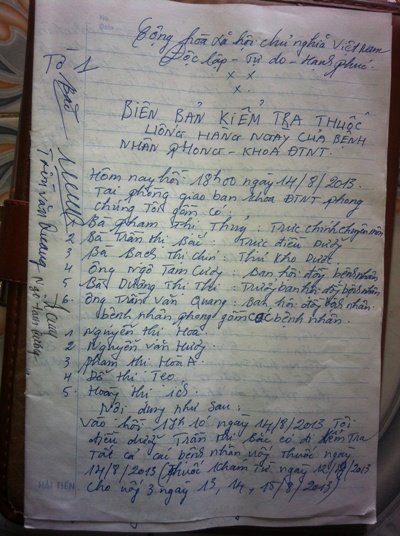 Cộng hòa xã hội chủ nghĩa Việt Nam
Độc lập - Tự do - Hạnh phúc.
x x
x.
BIÊN BẢN KIỂM TRA THUỐC
UỐNG HÀNG NGÀY CỦA BỆNH
NHÂN PHONG - KHOA ĐTNT.
Hôm nay hồi 18h00 ngày 14/8/2013.
Tại phòng giao ban khoa ĐTNT phong
chúng tôi gồm có:
1 Bà Phạm Thị Thủy: Trực chính chuyên môn
2 Bà Trần Thị Bái: Trực điều dưỡng
3 Bà Bạch Thị Chín: Thủ kho Dược
4 Ông Ngô Tam Cường: Ban hội đồng bệnh nhân
5 Bà Dương Thị Thu: Trưởng ban hội đồng bệnh nhân
6. Ông Trần Văn Quang: Ban hội đồng bệnh nhân.
bệnh nhân phong gồm có bệnh nhân.
1 Nguyễn Thị Hoa
2 Nguyễn Văn Hướng
3 Phạm Thị Hòn A
4 Đỗ Thị Tẹo
5. Hoàng Thị
Nội dung như sau:
Vào hồi 17h10 ngày 14/8/2013 Tôi
điều dưỡng Trần Thị Bái có đi kiểm tra
tất cả các bệnh nhân uống thuốc ngày
14/8/2013 (thuốc khám từ ngày 12/8/2013
cho uống 3 ngày 13, 14, 15/8/2013)
Tờ 1
Bái
Trần Văn Quang
Ngô Tam Cường
HẢI TIẾN